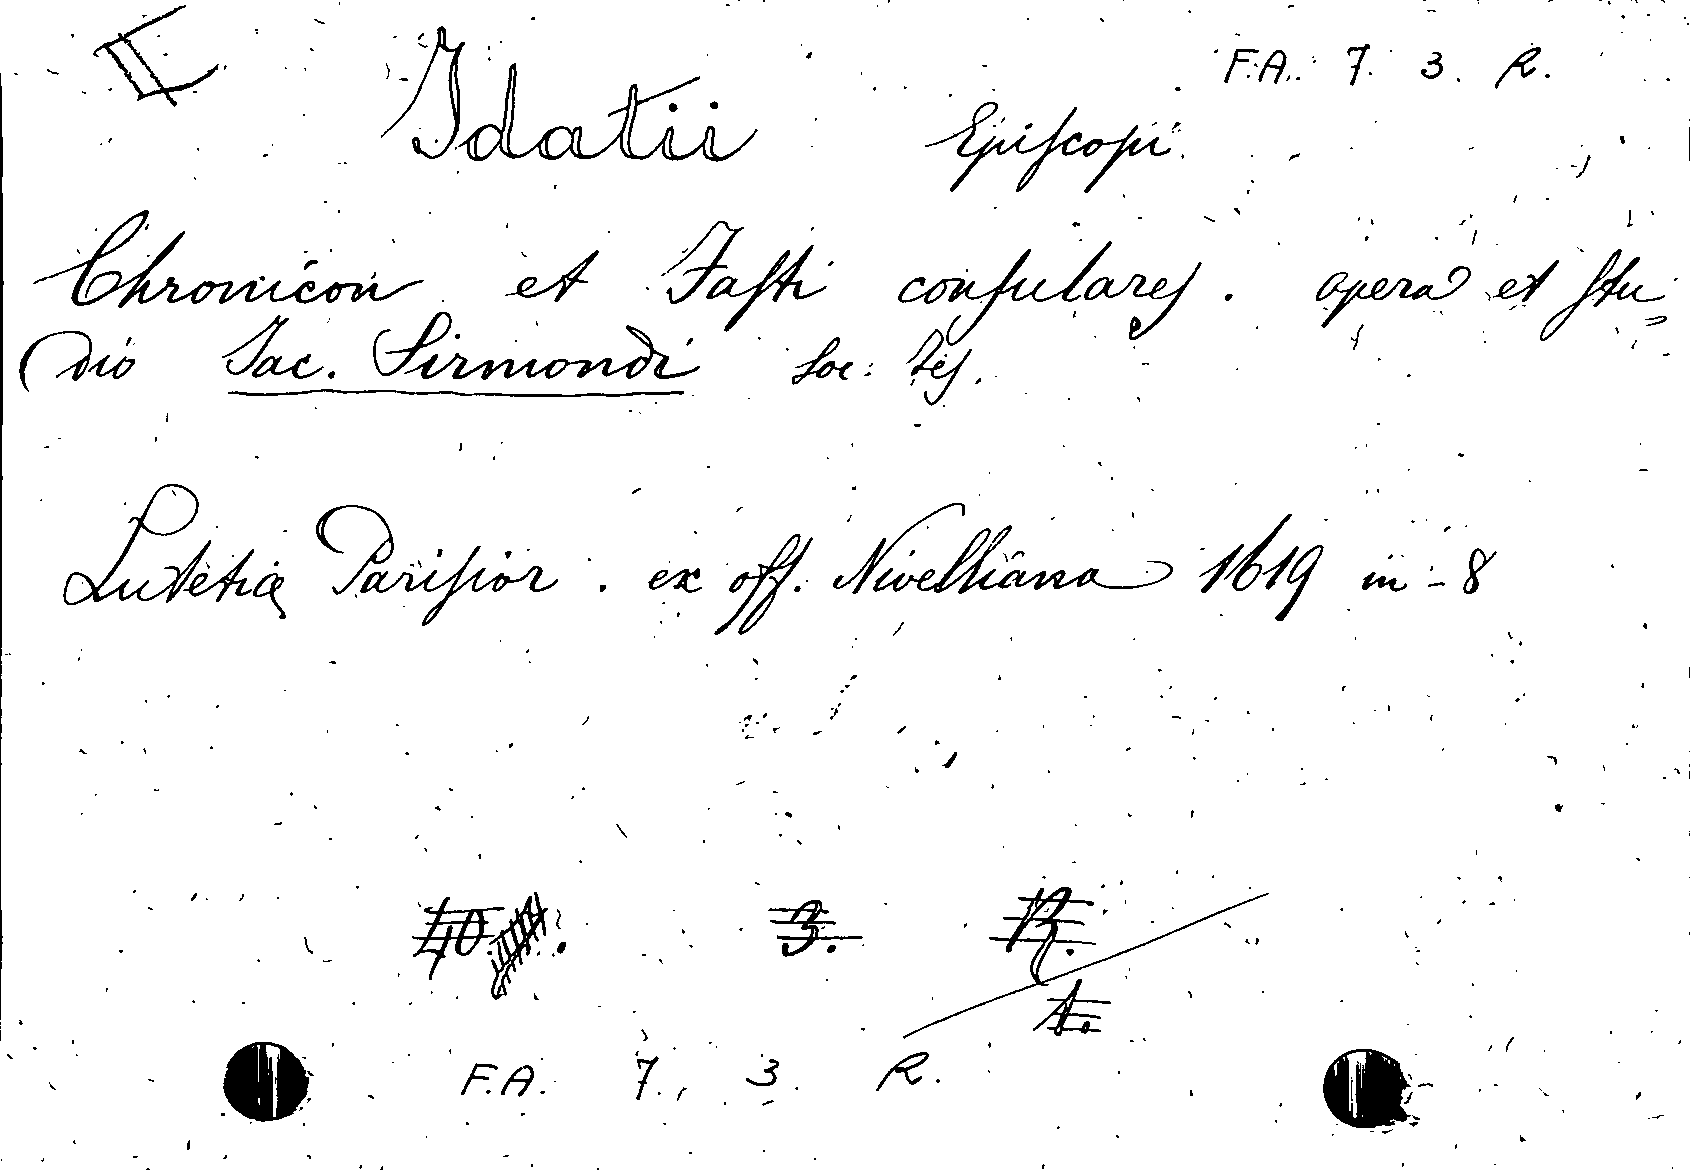 II
F.A. 7. 3. R.
Idatii Episcopi
Chronicon et Fasti consulares. opera et stu-
dio Jac. Sirmondi Soc: Jes.
Lutetiæ Parisior. ex off. Nivelliana 1619 in-8
40. 3. R.
1.
F.A. 7. 3. R.